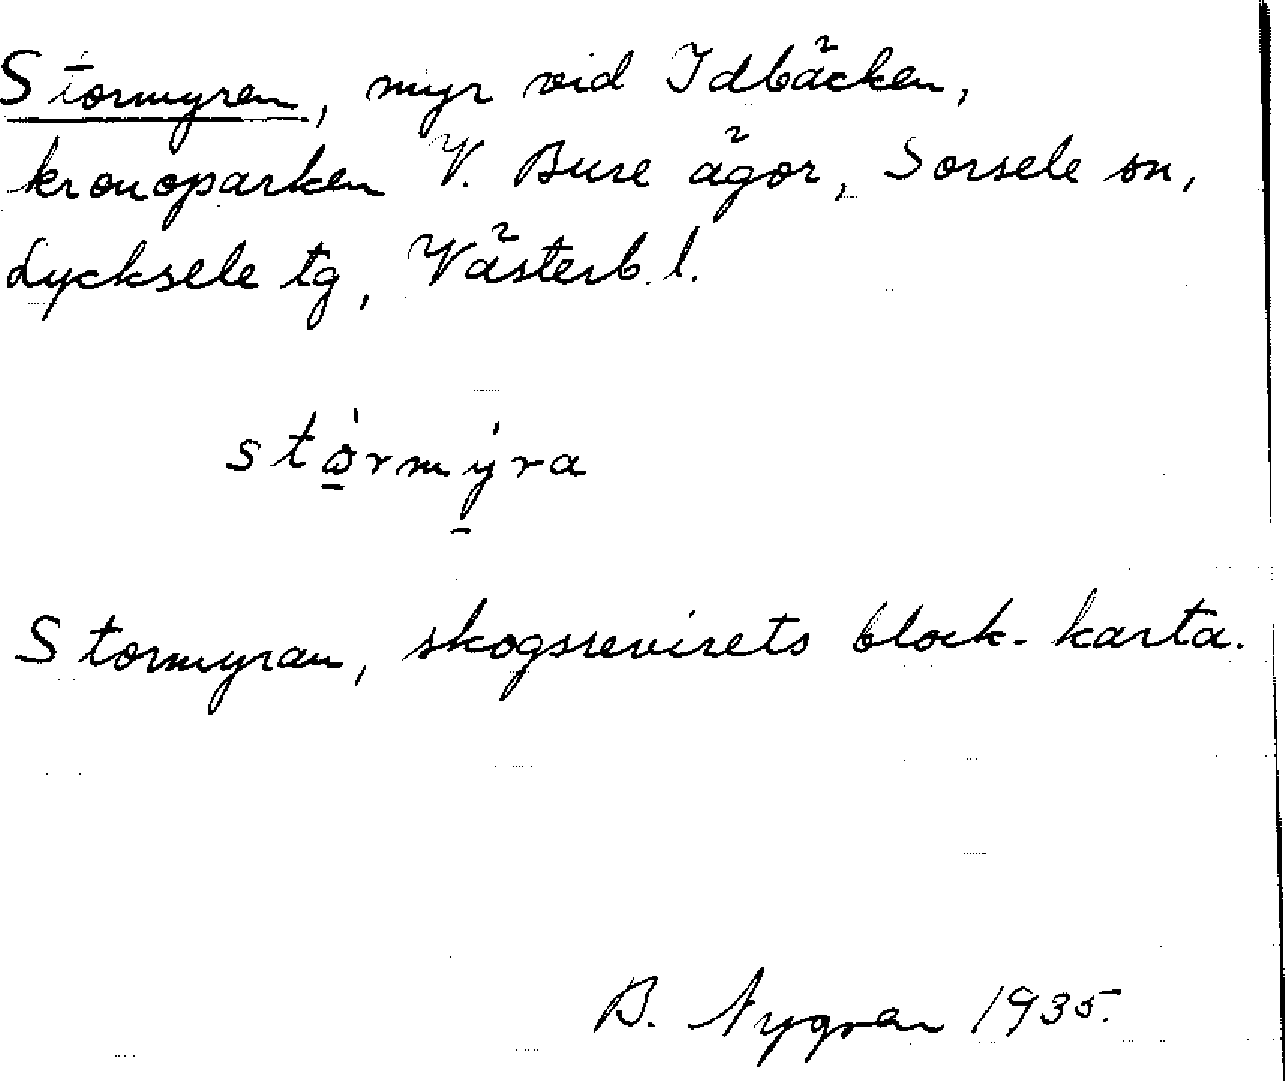 Stormyren, myr vid Idbäcken,
kronoparken V. Bure ägor, Sorsele sn,
Lycksele tg, Västerb. l.
stǫ̀rmýra
Stormyran, skogsrevirets block-karta.
B. Nygren 1935.